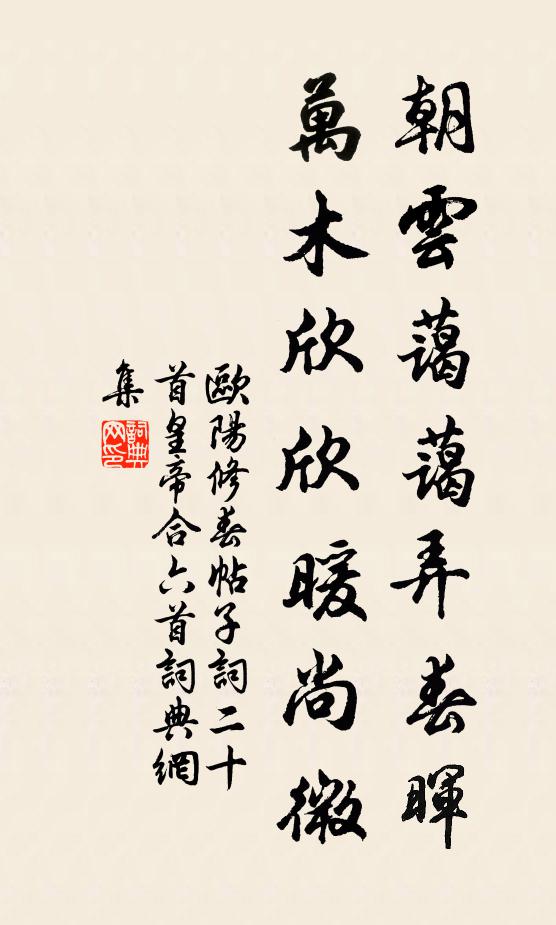 朝雲藹藹弄春暉
萬木欣欣暖尚微
歐陽修春帖子詞二十
首皇帝合六首詞典網
集
詞典
网印